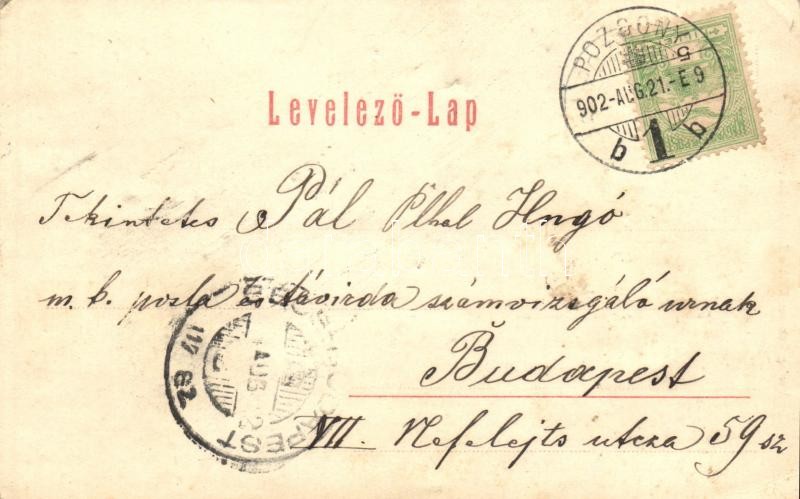 POZSONY
902-AUG.21.-E9
b 1 b
Levelező-Lap
Tekintetes Pál Hugó
m. k. posta és távirda számvizsgáló urnak
Budapest
VII. Nefelejts utcza 59 sz